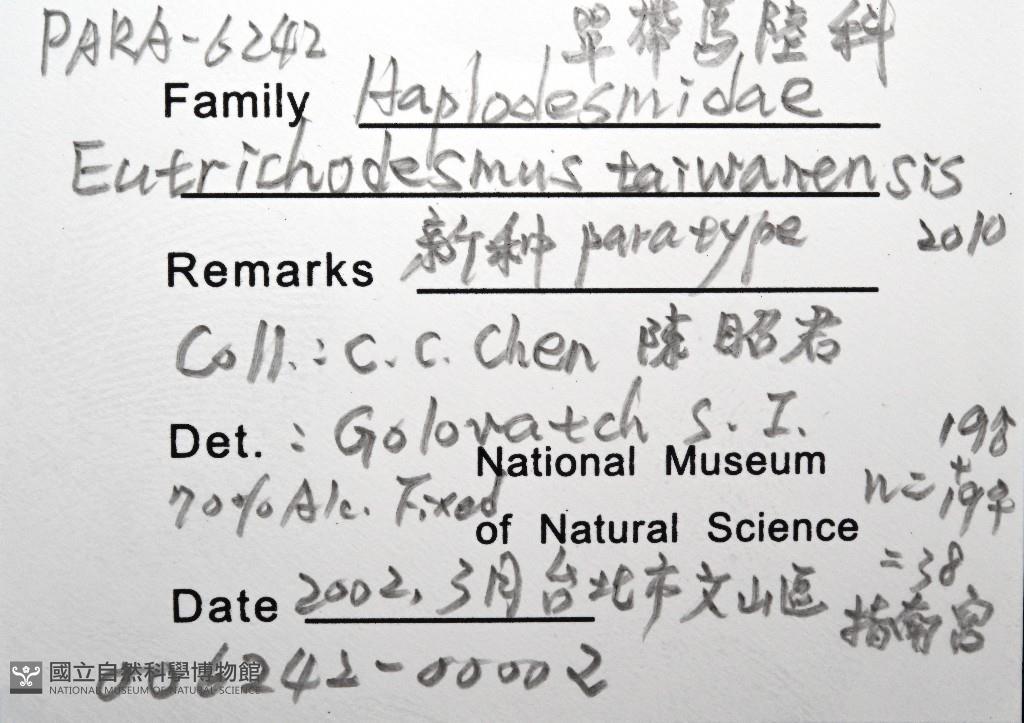 PARA-6242 單帶馬陸科
Family Haplodesmidae
Eutrichodesmus taiwanensis
Remarks 新种 paratype 2010
Coll.: C. C. Chen 陳昭君
Det.: Golovatch S. I.
National Museum 19♂
70% Alc. Fixed n= +19♀
of Natural Science
=38
Date 2002, 3月 台北市文山區 指南宮
006242-00002
國立自然科學博物館
NATIONAL MUSEUM OF NATURAL SCIENCE